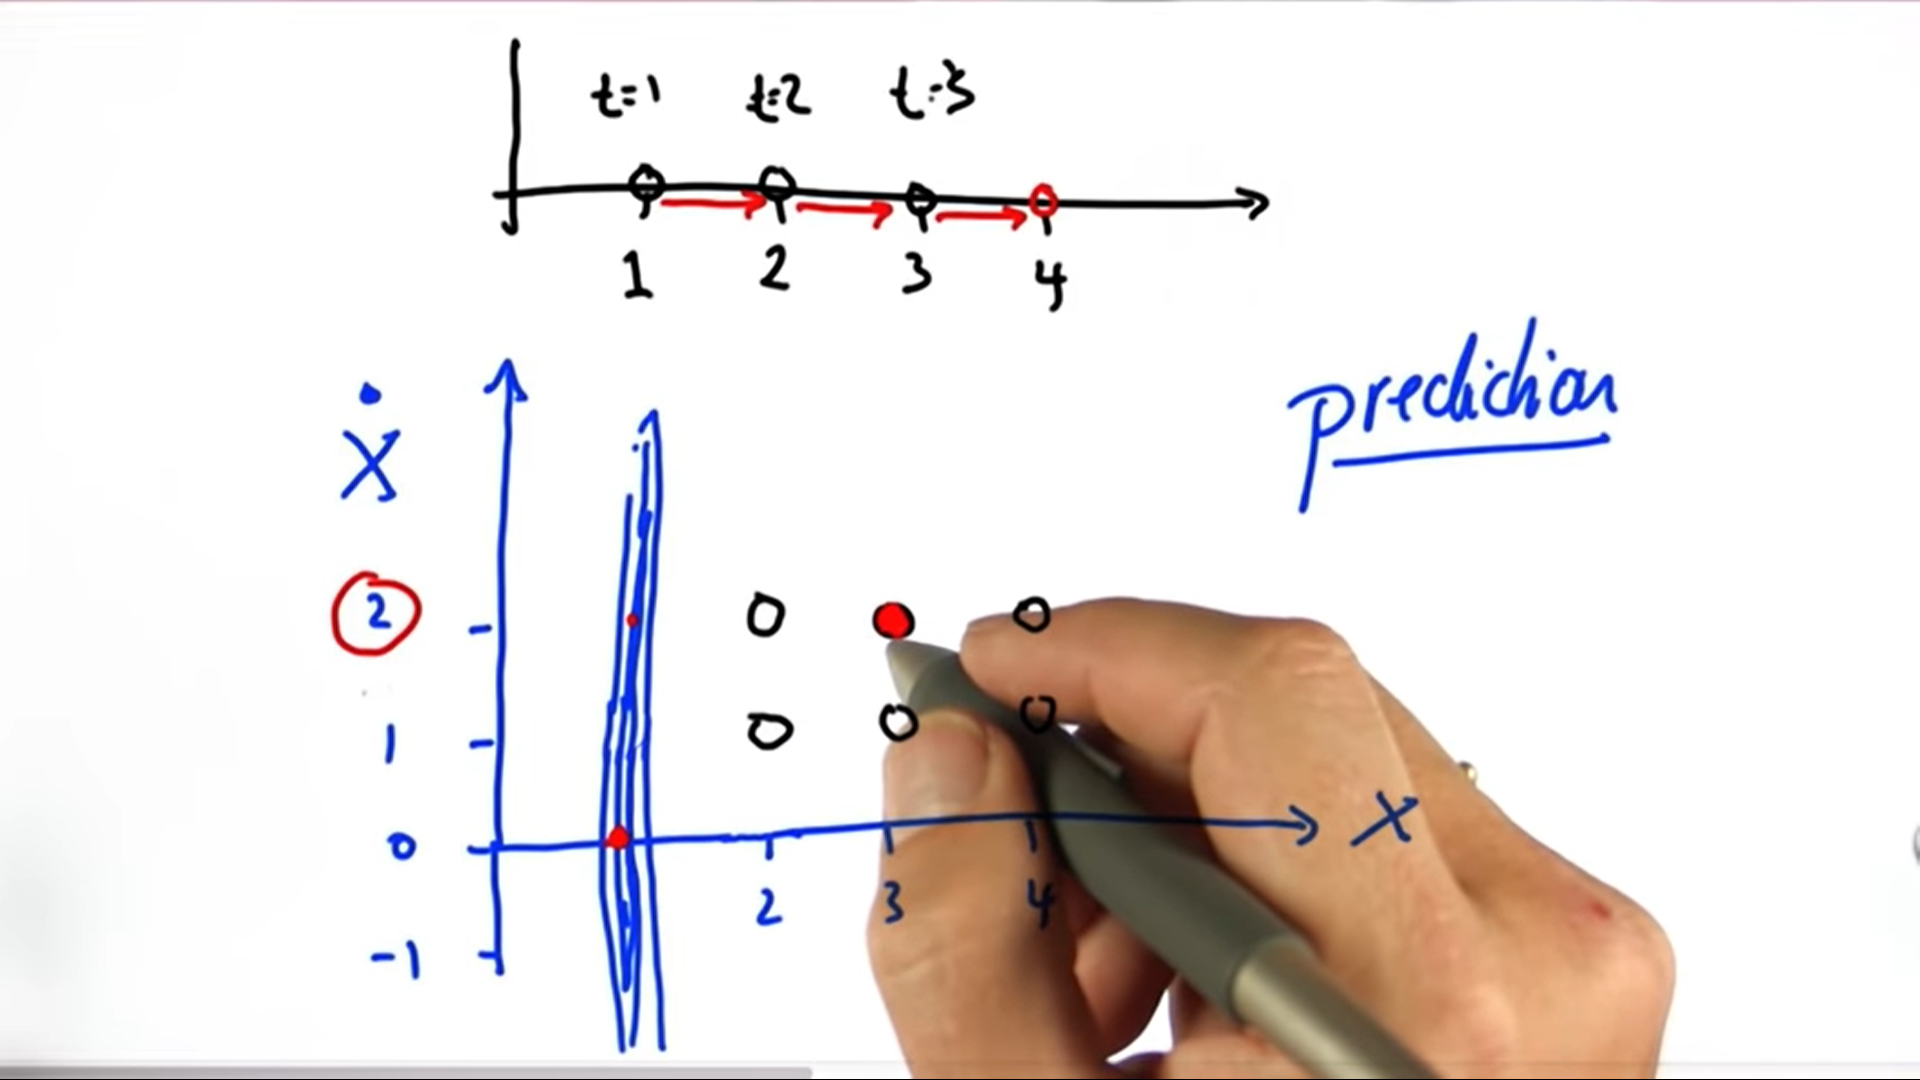 t=1 t=2 t=3
1 2 3 4
Ẋ
prediction
2
1
0
X
2 3 4
-1